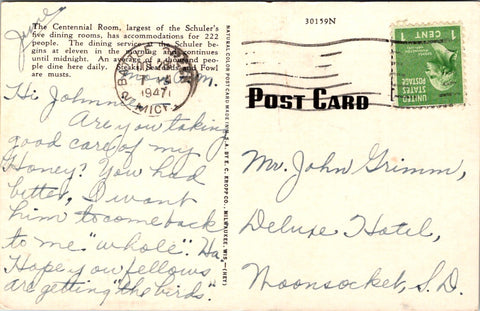 June
The Centennial Room, largest of the Schuler's
five dining rooms, has accommodations for 222
people. The dining service at the Schuler be-
gins at eleven in the morning and continues
until midnight. An average of a thousand peo-
ple dine here daily. Steaks, Seafoods and Fowl
are musts.
Hi Johnnie
Are you taking
good care of my
Honey? You had
better, I want
him to come back
to me "whole". Ha.
Hope you fellows
are getting "the birds".
NATURAL COLOR POST CARD MADE IN U.S.A. BY E. C. KROPP CO., MILWAUKEE, WIS.
30159N
1947
MICH
POST CARD
1 CENT 1
UNITED STATES POSTAGE
Mr. John Grimm,
Deluxe Hotel,
Woonsocket, S.D.